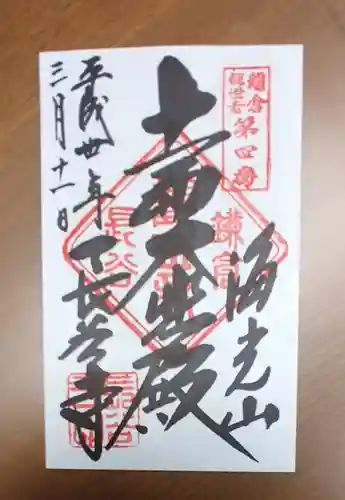 鎌倉
観世音
第四番
海光山
十一面大悲殿
鎌倉
長谷
長谷寺
平成丗年
三月十一日